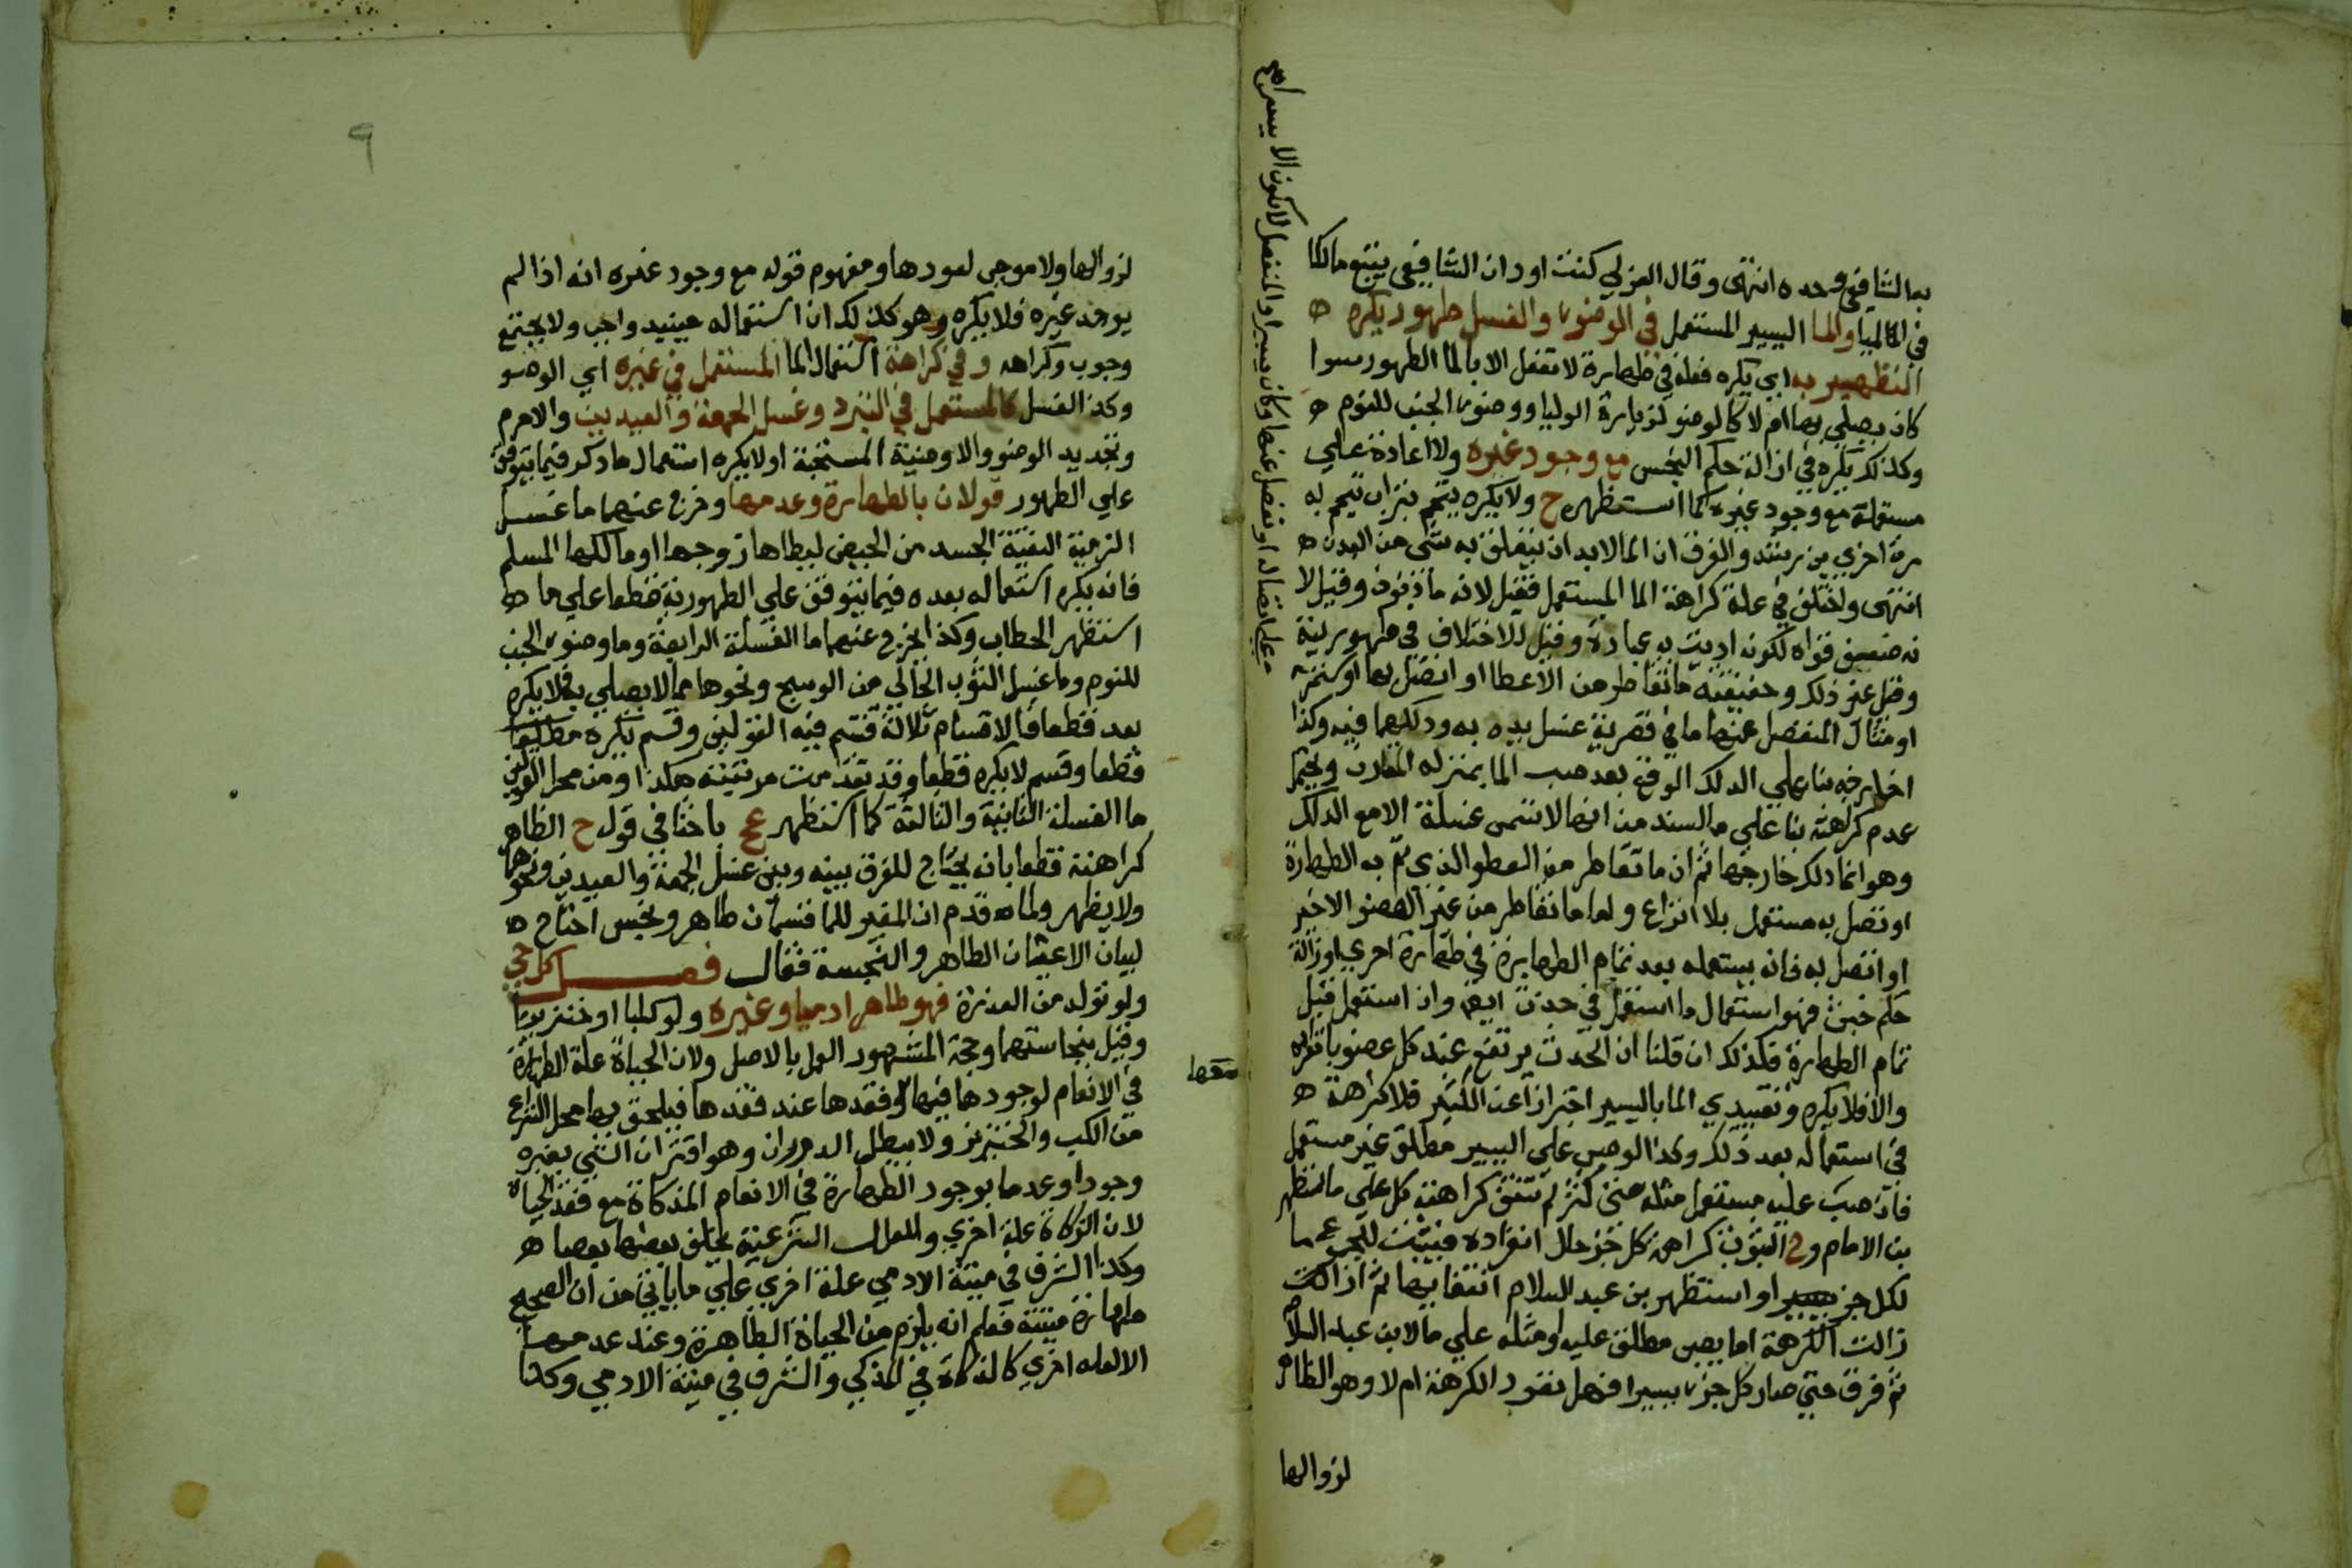 به الشافي وحده انتهى وقال الغزلي كنت اود ان الشافعي يتبع مالكا
في المياه والما اليسير المستعمل في الوضوء والغسل طهور يكره ه
التطهير به اي يكره فعله في طهارة لا تفعل الا بالما الطهور سوا
كان يصلي بها ام لا كالوضو لزيارة الوليا ووضوء الجنب للنوم ه
وكذلك يكره في ازالة حكم النجس مع وجود غيره ولا اعادة علي
مستعمله مع وجود غيره كما استظهره ح ولا يكره يتيم بتراب تيمم به
مرة اخري بن رشد والفرق ان الما لا بد ان يتعلق به شي من البدن ه
انتهى واختلف في علة كراهة الما المستعمل فقيل لانه ماذنوب وقيل لا
نه ضعيف قواه لكونه اديت به عبادة وقيل للاختلاف في طهوريته
وقيل غير ذلك وحقيقته ما تقاطر من الاعطا او اتصل بها او كنز
او مثال المنفصل عنها ما في قصرية غسل يديه به ودلكهما فيه وكذا
اخارجه بنا علي الدلك الوقع بعد صب الما بمنزله المقارن ويحتمل
عدم كراهته بنا علي ما لسند من انها لا تسمى غسلة الا مع الدلك
وهو انما دلك خارجها ثم ان ما تقاطر من العطو الذي تم به الطهارة
او تصل به مستعمل بلا انزاع واما ما تقاطر من غير العضو الاخير
او اتصل به فانه يستعمله بعد تمام الطهارة في طهارة اخري او ازالة
حكم خبث فهو استعمال ما استعمل في حدث ايضا وان استعمل قبل
تمام الطهارة فكذلك ان قلنا ان الحدث يرتفع عند كل عضو بانفراده
والا فلا يكره وتقييدي الما باليسير احترازا عن الكثير فلا كراهة ه
في استعماله بعد ذلك وكذا لو صب علي اليسير مطلق غير مستعمل
فان صب عليه مستعمل مثله حتى كثر لم تنتف كراهته كل علي ما استظهر
بن الامام وح لثبوت كراهة كل جز حال انفراده فيثبت للمجموع ما
لكل جز او استظهر بن عبد السلام انتفاييها ثم اذا كثر
زالت الكرهة اما بصب مطلق عليه او مثله علي ما لابن عبد السلام
ثم فرق حتي صار كل جزء يسيرا فهل تعود الكرهة ام لا وهو الظاهر
لزوالها
لزوالها ولا موجب لعودها ومفهوم قوله مع وجود غيره انه اذا لم
يوجد غيره فلا يكره وهو كذلك لان استعماله حينيد واجب ولا يجتمع
وجوب وكراهه وفي كراهة استعمال الما المستعمل في غيره اي الوضو
وكذا الغسل كالمستعمل في التبرد وغسل الجمعة والعيدين والاحرم
وتجديد الوضو والاوضية المستحبة او لا يكره استعمال ما ذكر فيما يتوقف
علي الطهور قولان بالطهارة وعدمها وخرج عنهما ما غسل
الزمية النقية الجسد من الحيض ليطاها زوجها او مالكها المسلم
فانه يكره استعماله بعده فيما يتوقف علي الطهورية قطعا علي ما ه
استظهر الحطاب وكذا يخرج عنهما ما الغسلة الرابعة وما وضوء الجنب
للنوم وما غسل الثوب الخالي من الوسخ ونحوها مما لا يصلي به فلا يكره
بعد قطعا فالاقسام ثلاثة قسم فيه القولين وقسم تكره
قطعا وقسم لا يكره قطعا وقد تقدمت مرتبته هكذا ومن محل القولين
ما الغسلة الثانية والثالثة كما استظهر عج باحثا في قول ح الظاهر
كراهته قطعا بانه يحتاج للفرق بينه وبين غسل الجمعة والعيدين ونحوهما
ولا يظهر ولما قدم ان المغير للما قسمان طاهر ونجس احتاج ه
لبيان الاعيان الطاهر والنجسة فقال فصل كل حي
ولو تولد من العذرة فهو طاهر ادميا وغيره ولو كلبا او خنزيرا
وقيل بنجاستهما وحجة المشهور العمل بالاصل ولان الحياة علة الطهارة
في الانعام لوجودها فيها وفقدها عند فقدها فيلحق بها محل النزاع
من الكلب والخنزير ولا يبطل الدوران وهو اقتران الشي بغيره
وجودا وعدما بوجود الطهارة في الانعام المذكاة مع فقد الحياة
لان الزكاة علة اخري والعلل الشرعية يخلف بعضها بعضا ه
وكذا الشرف في ميتة الادمي علة اخري علي ما ياتي من ان الصحيح
طهارة ميتته فعلم انه يلزم من الحياة الطاهرة وعند عدمها
الا لعله اخري كالذكاة في المذكي والشرف في ميتة الادمي وكذا